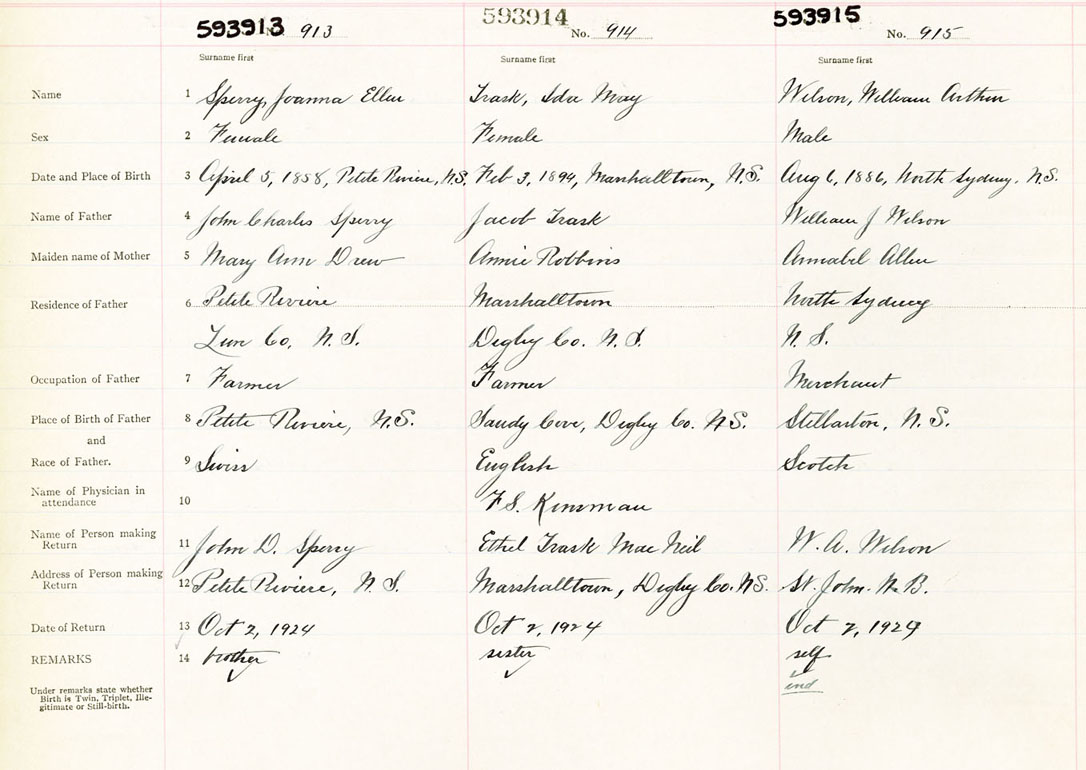 593913 No. 913 593914 No. 914 593915 No. 915
Surname first Surname first Surname first
Name 1 Sperry, Joanna Ellen Trask, Ida May Wilson, William Arthur
Sex 2 Female Female Male
Date and Place of Birth 3 April 5, 1858, Petite Riviere, N.S. Feb 3, 1894, Marshalltown, N.S. Aug 6, 1886, North Sydney, N.S.
Name of Father 4 John Charles Sperry Jacob Trask William J Wilson
Maiden name of Mother 5 Mary Ann Drew Annie Robbins Annabel Allen
Residence of Father 6 Petite Riviere Marshalltown North Sydney
Lun Co, N.S. Digby Co. N.S. N.S.
Occupation of Father 7 Farmer Farmer Merchant
Place of Birth of Father 8 Petite Riviere, N.S. Sandy Cove, Digby Co. NS. Stellarton, N.S.
and
Race of Father. 9 Swiss English Scotch
Name of Physician in
attendance 10 F.S. Kinsman
Name of Person making
Return 11 John D. Sperry Ethel Trask MacNeil W.A. Wilson
Address of Person making
Return 12 Petite Riviere, N.S. Marshalltown, Digby Co. NS. St. John. N.B.
Date of Return 13 Oct 2, 1924 Oct 2, 1924 Oct 2, 1924
REMARKS 14 brother sister self
Under remarks state whether end
Birth is Twin, Triplet, Ille-
gitimate or Still-birth.